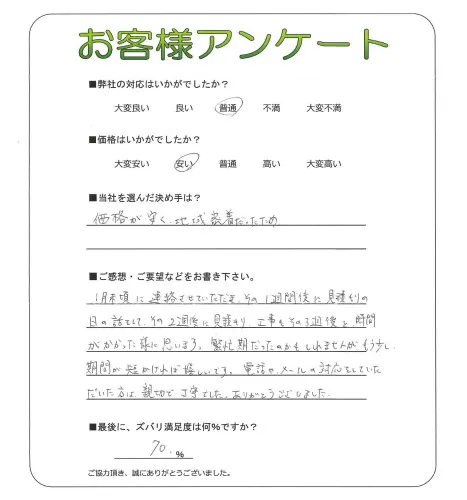 お客様アンケート
■弊社の対応はいかがでしたか？
大変良い 良い 普通 不満 大変不満
■価格はいかがでしたか？
大変安い 安い 普通 高い 大変高い
■当社を選んだ決め手は？
価格が安く、地域密着だったため
■ご感想・ご要望などをお書き下さい。
1月末頃に連絡させていただき、その1週間後に見積りの
日の話をして、その2週後に見積り、工事もその3週後と、時間
がかかった様に思います。繁忙期だったのかもしれませんがもう少し
期間が短かければ嬉しいです。電話や、メールの対応をしていた
だいた方は、親切で丁寧でした。ありがとうございました。
■最後に、ズバリ満足度は何%ですか？
70.%
ご協力頂き、誠にありがとうございました。